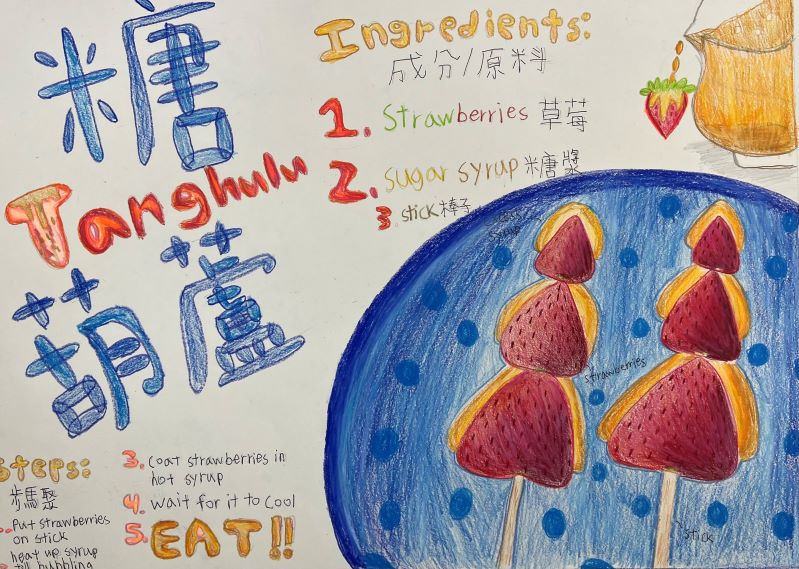 糖
Tanghulu
葫蘆
Ingredients:
成分/原料
1. Strawberries 草莓
2. sugar syrup 糖漿
3. stick 棒子
syrup
strawberries
stick
Steps:
Put strawberries
on stick
heat up syrup
till bubbling
3. coat strawberries in
hot syrup
4. wait for it to cool
5. EAT!!